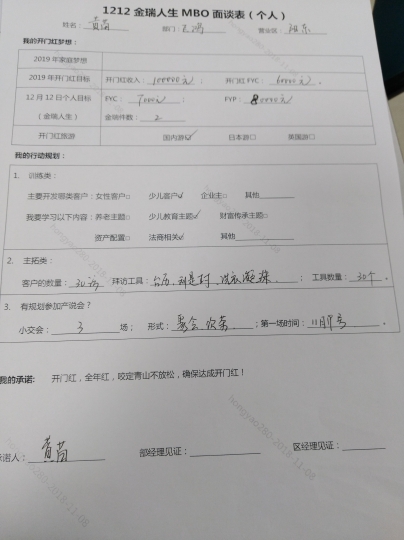 1212 金瑞人生 MBO 面谈表（个人）
姓名：黄苗 部门： 营业区：
我的开门红梦想：
2019 年家庭梦想
2019 年开门红目标 开门红收入：100000元； 开门红 FYC：60000元。
12 月 12 日个人目标（金瑞人生） FYC：7000元； FYP：80000元
金瑞件数：2
开门红旅游 国内游☑ 日本游□ 英国游□
我的行动规划：
1. 训练类：
主要开发哪类客户：女性客户□ 少儿客户☑ 企业主□ 其他
我要学习以下内容：养老主题□ 少儿教育主题☑ 财富传承主题□
资产配置□ 法商相关☑ 其他
2. 主拓类：
客户的数量：30访 拜访工具：台历、洗衣凝珠； 工具数量：30个。
3. 有规划参加产说会？
小交会：3 场； 形式： ；第一场时间：11月 号。
我的承诺: 开门红，全年红，咬定青山不放松，确保达成开门红！
承诺人：黄苗 部经理见证： 区经理见证：